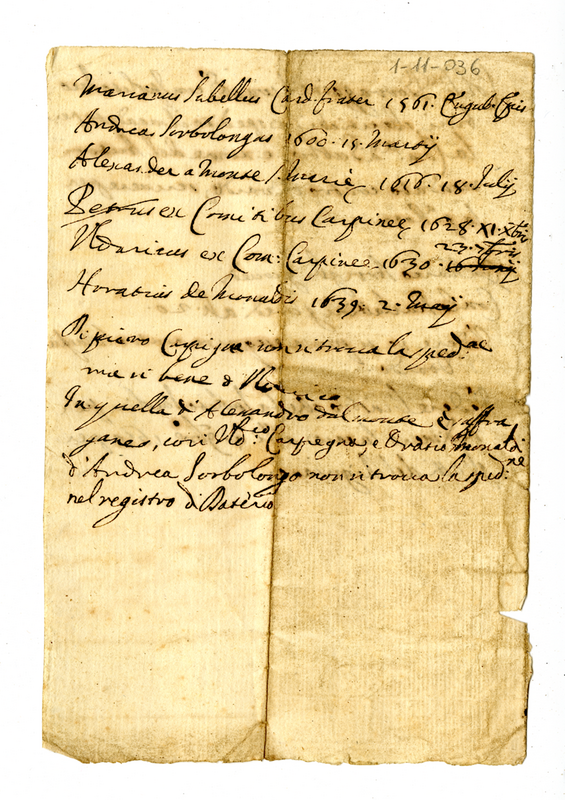 1-11-036
Marianus Sabellus Card. frater 1561. Eugub. Epis
Andrea Sorbolongus 1600. 15. Martij
Alexander a Monte S. Marię 1616. 18. Julij
Petrus ex Comitibus Carpineę 1628. XI. Xbris
Uldaricus ex Com: Carpineę 1630. 23. 7bris
Horatius de Monaldis 1639. 2. Maij
Di pietro Carpigna non si trova la sped.
ma si bene d'
In quella di Alexandro dal monte è suffra
ganeo, così Uld.co Carpegna, e Oratio Monaldi
d'Andrea Sorbolongo non si trova la sped:ne
nel registro di